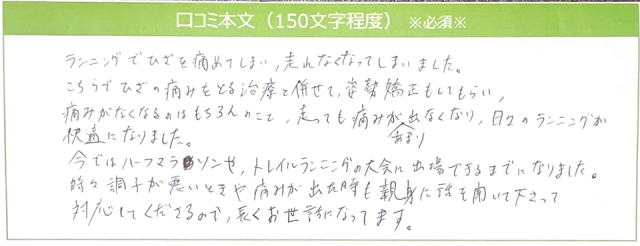 口コミ本文（150文字程度）※必須※
ランニングでひざを痛めてしまい,走れなくなってしまいました。
こちらでひざの痛みをとる治療と併せて,姿勢矯正もしてもらい,
痛みがなくなるのはもちろんのこと,走っても痛みが出なくなり,日々のランニングが
あまり
快適になりました。
今ではハーフマラソンや,トレイルランニングの大会に出場できるまでになりました。
時々調子が悪いときや痛みが出た時も親身に話を聞いて下さって
対応してくださるので,長くお世話になってます。